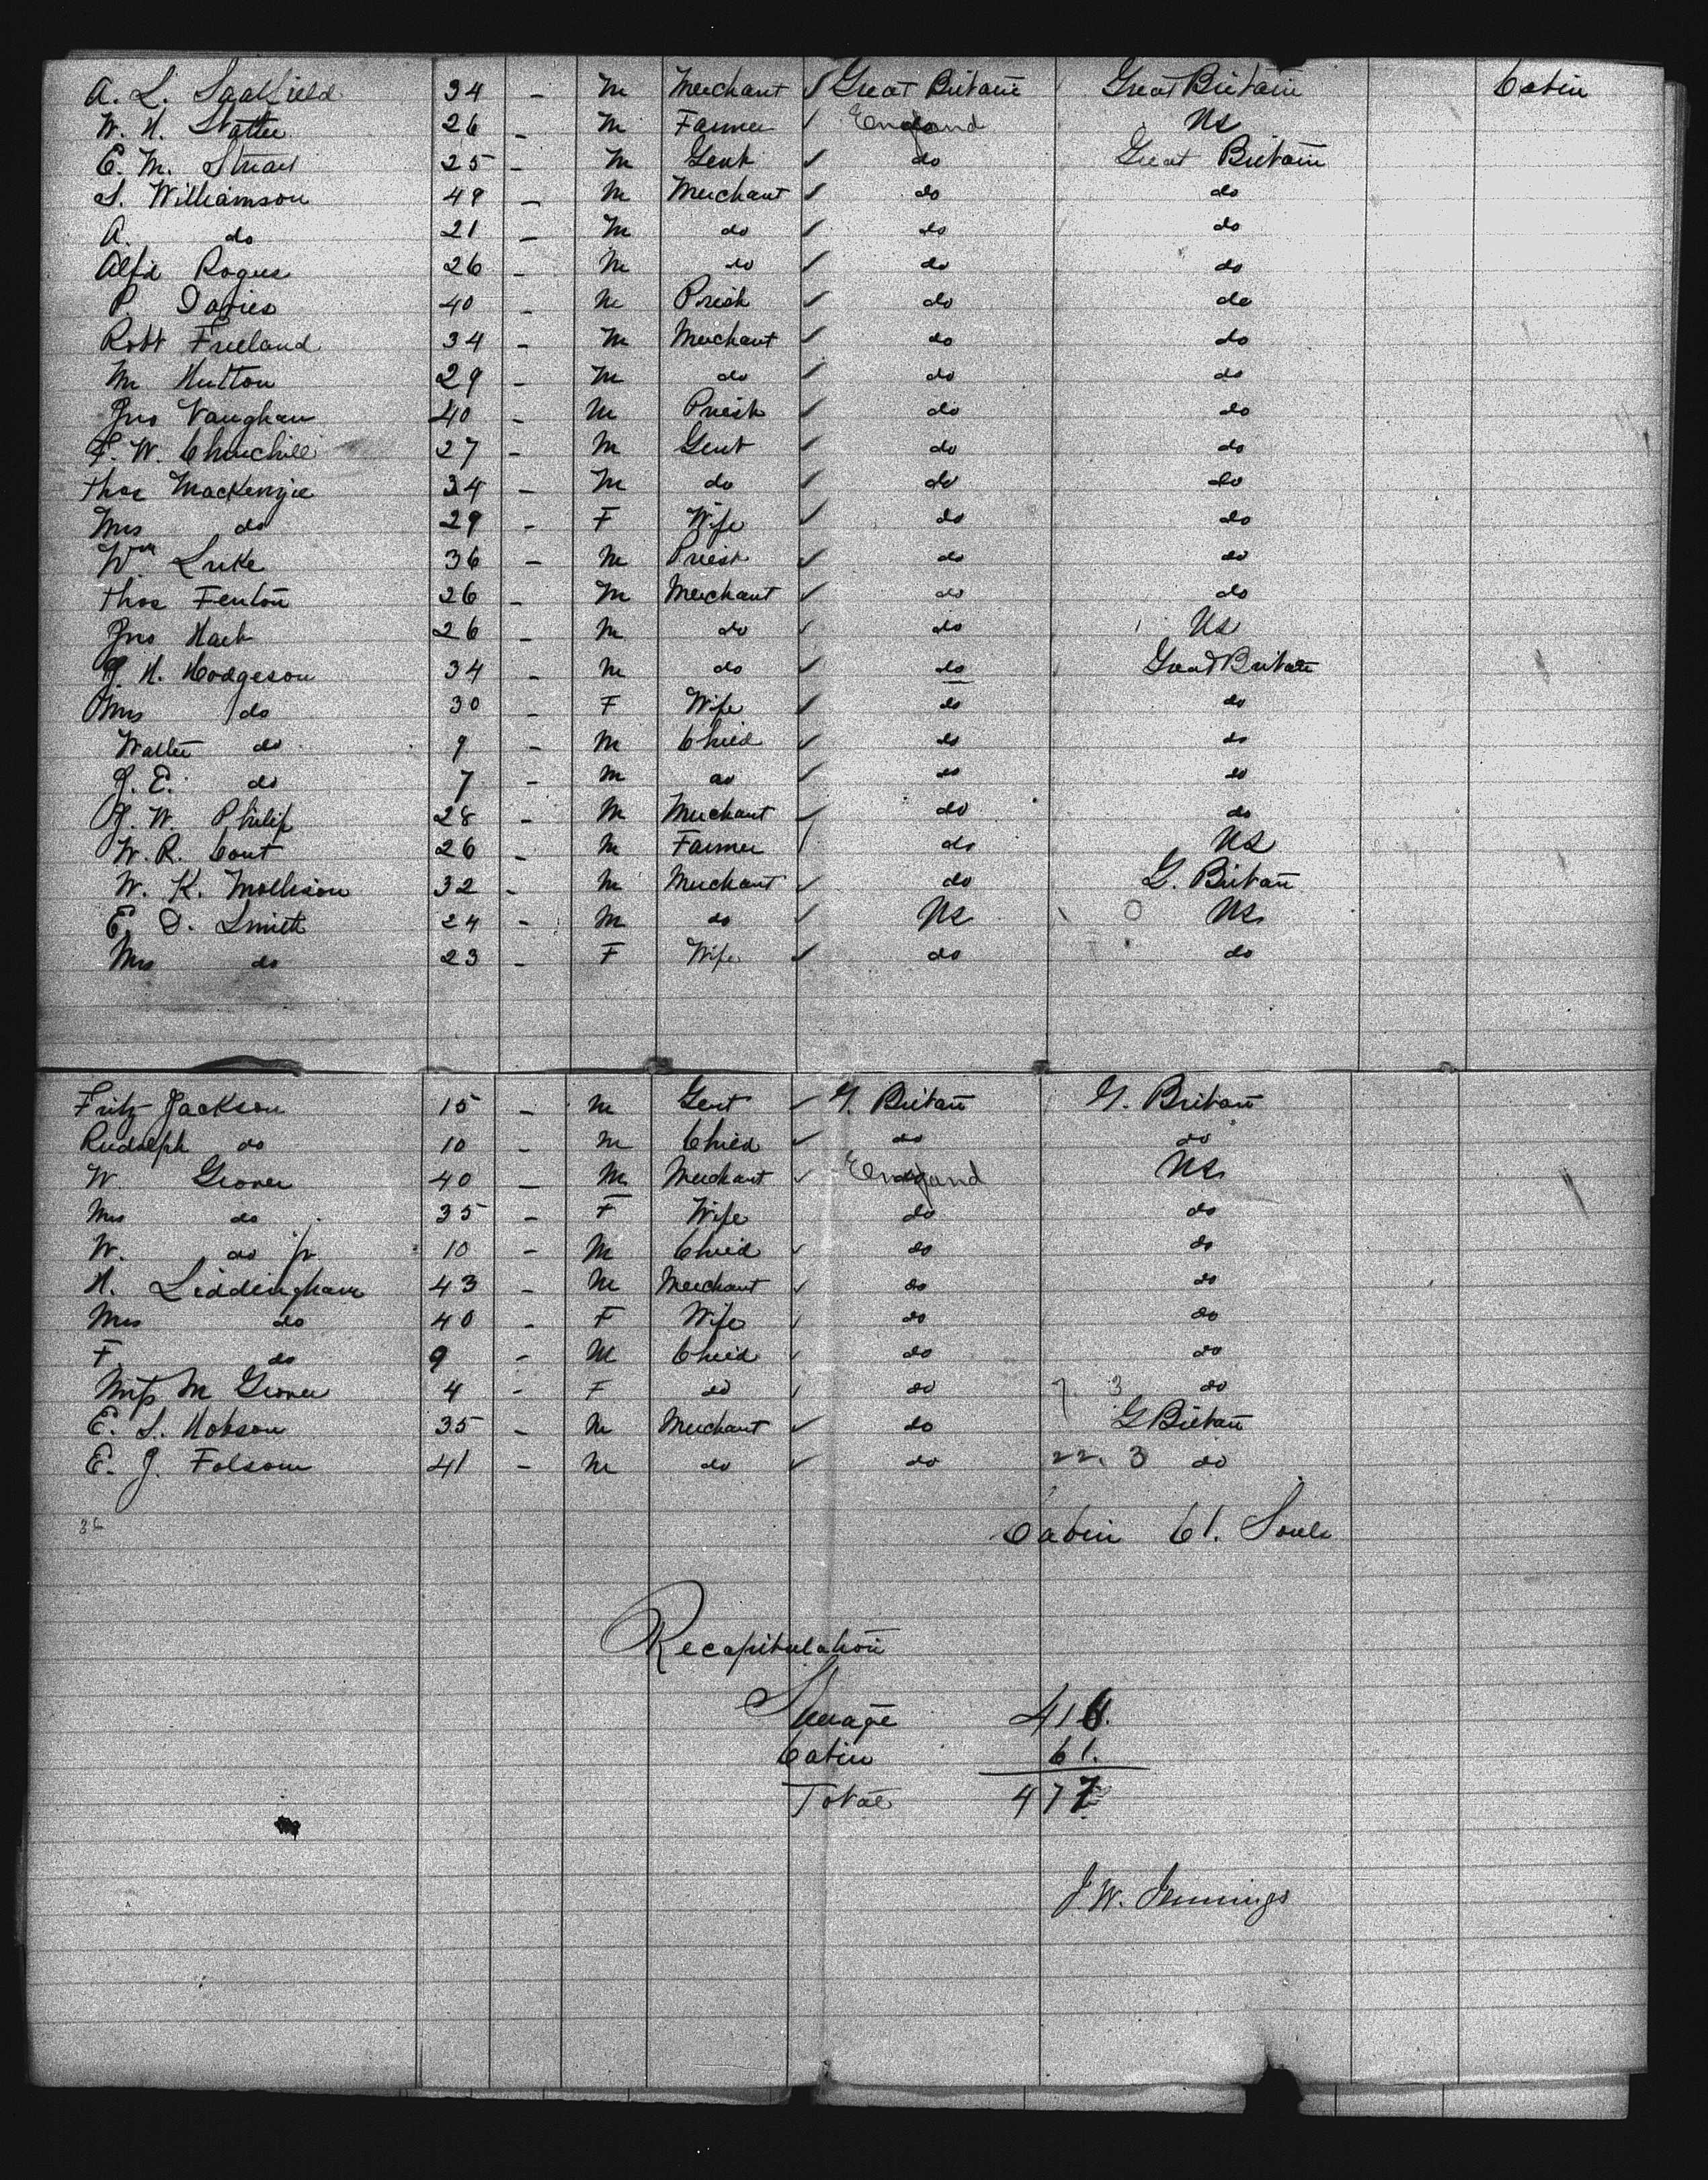 A. L. Saalfield 34 - M Merchant ✓ Great Britain Great Britain Cabin
W. H. Slatter 26 - M Farmer ✓ England US
E. M. Stuart 25 - M Gent ✓ do Great Britain
S. Williamson 49 - M Merchant ✓ do do
A. do 21 - M do ✓ do do
Alfd Rogers 26 - M do ✓ do do
P. Davies 40 - M Priest ✓ do do
Robt Freeland 34 - M Merchant ✓ do do
M Hutton 29 - M do ✓ do do
Jno Vaughan 40 - M Priest ✓ do do
F. W. Churchill 27 - M Gent ✓ do do
Thos MacKenzie 34 - M do ✓ do do
Mrs do 29 - F Wife ✓ do do
Wm Luke 36 - M Priest ✓ do do
Thos Fenton 26 - M Merchant ✓ do do
Jno Hark 26 - M do ✓ do US
J. H. Hodgeson 34 - M do ✓ do Great Britain
Mrs do 30 - F Wife ✓ do do
Walter do 9 - M Child ✓ do do
J. E. do 7 - M do ✓ do do
J. W. Philip 28 - M Merchant ✓ do do
W. R. Cout 26 - M Farmer / do US
W. K. Mollison 32 - M Merchant ✓ do G. Britain
E. D. Smith 24 - M do ✓ US US
Mrs do 23 - F Wife ✓ do do
Fritz Jackson 15 - M Gent ✓ G. Britain G. Britain
Rudolph do 10 - M Child ✓ do do
W. Grover 40 - M Merchant ✓ England US
Mrs do 35 - F Wife do do
W. do jr 10 - M Child ✓ do do
H. Liddingham 43 - M Merchant ✓ do do
Mrs do 40 - F Wife ✓ do do
F. do 9 - M Child ✓ do do
Miss M Grover 4 - F do ✓ do 7. 3 do
E. S. Hobson 35 - M Merchant ✓ do G Britain
E. J. Folsom 41 - M do ✓ do 22. 3 do
36
Cabin 61. Souls
Recapitulation
Steerage 416.
Cabin 61.
Total 477
J. W. Jennings